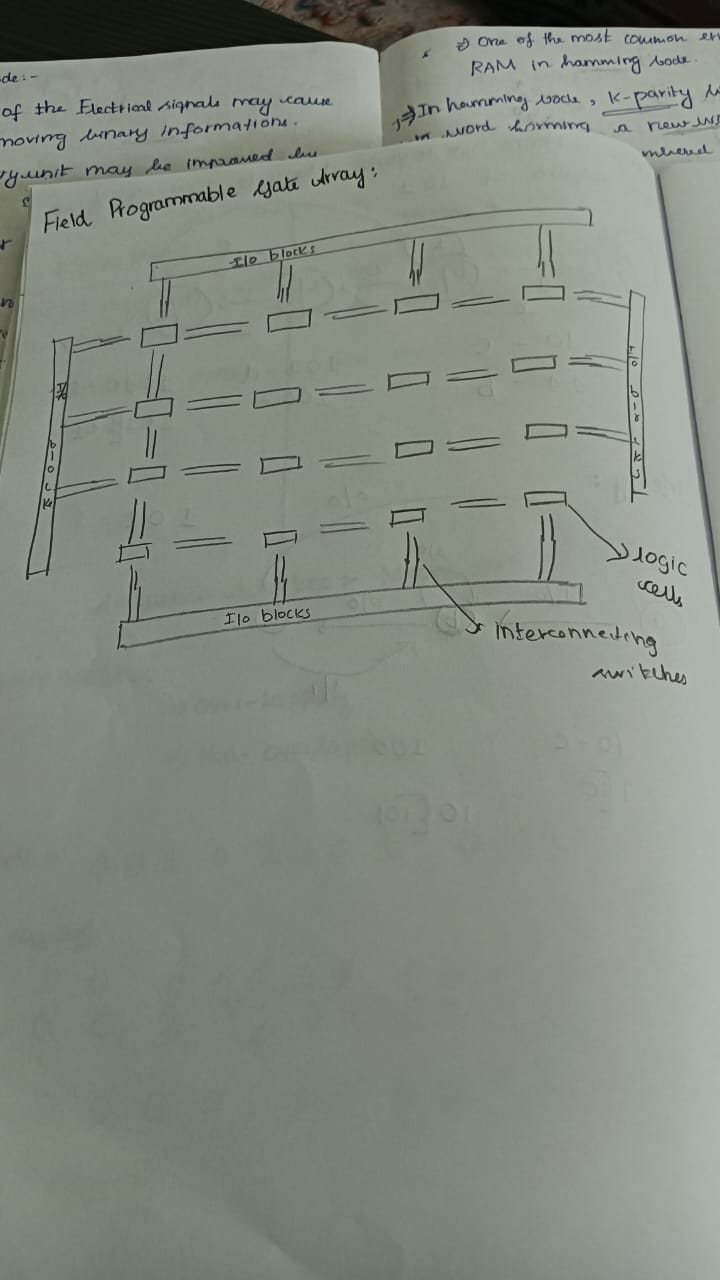 de:-
of the Electrical signals may cause
moving binary informations.
unit may be improved by
⇒ One of the most common
RAM in hamming code.
⇒ In hamming code, K-parity
word forming a new
Field Programmable Gate Array:
I/o blocks
I/o block
I/o blocks
I/o blocks
logic
cells
interconnecting
switches